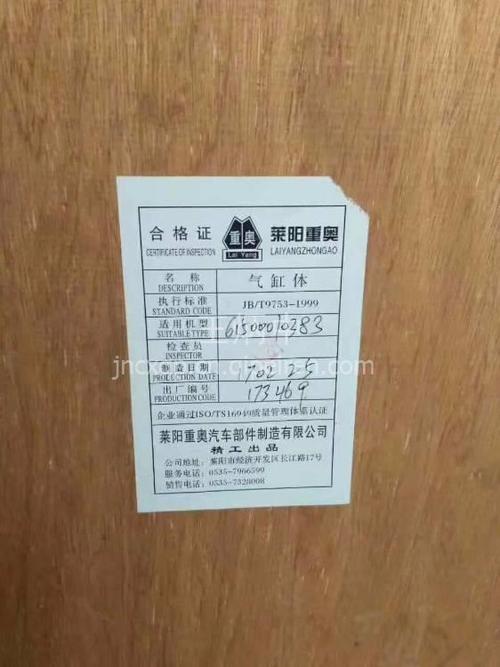 合格证
CERTIFICATE OF INSPECTION
重奥
Lai Yang
莱阳重奥
LAIYANGZHONGAO
名称 气缸体
DESCRIPTION
执行标准 JB/T9753-1999
STANDARD CODE
适用机型 61500010383
SUITABLE TYPE
检查员
INSPECTOR
制造日期 1702 25
PRODUCTION DATE
出厂编号 173469
PRODUCTION CODE
企业通过ISO/TS16949质量管理体系认证
莱阳重奥汽车部件制造有限公司
精工出品
公司地址：莱阳市经济开发区长江路17号
服务电话：0535-7966599
销售电话：0535-7328008